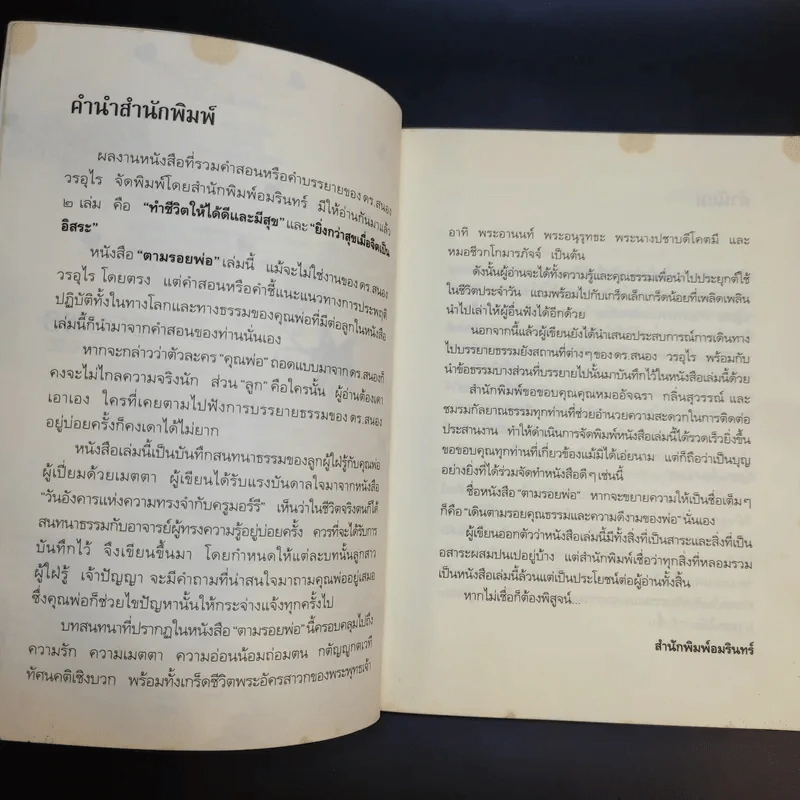 คำนำสำนักพิมพ์
ผลงานหนังสือที่รวมคำสอนหรือคำบรรยายของ ดร.สนอง
วรอุไร จัดพิมพ์โดยสำนักพิมพ์อมรินทร์ มีให้อ่านกันมาแล้ว
๒ เล่ม คือ “ทำชีวิตให้ได้ดีและมีสุข” และ “ยิ่งกว่าสุขเมื่อจิตเป็น
อิสระ”
หนังสือ “ตามรอยพ่อ” เล่มนี้ แม้จะไม่ใช่งานของ ดร.สนอง
วรอุไร โดยตรง แต่คำสอนหรือคำชี้แนะแนวทางการประพฤติ
ปฏิบัติทั้งในทางโลกและทางธรรมของคุณพ่อที่มีต่อลูกในหนังสือ
เล่มนี้ก็นำมาจากคำสอนของท่านนั่นเอง
หากจะกล่าวว่าตัวละคร “คุณพ่อ” ถอดแบบมาจาก ดร.สนองก็
คงจะไม่ไกลความจริงนัก ส่วน “ลูก” คือใครนั้น ผู้อ่านต้องเดา
เอาเอง ใครที่เคยตามไปฟังการบรรยายธรรมของ ดร.สนอง
อยู่บ่อยครั้งก็คงเดาได้ไม่ยาก
หนังสือเล่มนี้เป็นบันทึกสนทนาธรรมของลูกผู้ใฝ่รู้กับคุณพ่อ
ผู้เปี่ยมด้วยเมตตา ผู้เขียนได้รับแรงบันดาลใจมาจากหนังสือ
“วันอังคารแห่งความทรงจำกับครูมอร์รี” เห็นว่าในชีวิตจริงตนก็ได้
สนทนาธรรมกับอาจารย์ผู้ทรงความรู้อยู่บ่อยครั้ง ควรที่จะได้รับการ
บันทึกไว้ จึงเขียนขึ้นมา โดยกำหนดให้แต่ละบทนั้นลูกสาว
ผู้ใฝ่รู้ เจ้าปัญญา จะมีคำถามที่น่าสนใจมาถามคุณพ่ออยู่เสมอ
ซึ่งคุณพ่อก็ช่วยไขปัญหานั้นให้กระจ่างแจ้งทุกครั้งไป
บทสนทนาที่ปรากฏในหนังสือ “ตามรอยพ่อ” นี้ครอบคลุมไปถึง
ความรัก ความเมตตา ความอ่อนน้อมถ่อมตน กตัญญูกตเวที
ทัศนคติเชิงบวก พร้อมทั้งเกร็ดชีวิตพระอัครสาวกของพระพุทธเจ้า
อาทิ พระอานนท์ พระอนุรุทธะ พระนางปชาบดีโคตมี และ
หมอชีวกโกมารภัจจ์ เป็นต้น
ดังนั้นผู้อ่านจะได้ทั้งความรู้และคุณธรรมเพื่อนำไปประยุกต์ใช้
ในชีวิตประจำวัน แถมพร้อมไปกับเกร็ดเล็กเกร็ดน้อยที่เพลิดเพลิน
นำไปเล่าให้ผู้อื่นฟังได้อีกด้วย
นอกจากนี้แล้วผู้เขียนยังได้นำเสนอประสบการณ์การเดินทาง
ไปบรรยายธรรมยังสถานที่ต่างๆ ของ ดร.สนอง วรอุไร พร้อมกับ
นำข้อธรรมบางส่วนที่บรรยายไปนั้นมาบันทึกไว้ในหนังสือเล่มนี้ด้วย
สำนักพิมพ์ขอขอบคุณคุณหมออัจฉรา กลิ่นสุวรรณ์ และ
ชมรมกัลยาณธรรมทุกท่านที่ช่วยอำนวยความสะดวกในการติดต่อ
ประสานงาน ทำให้ดำเนินการจัดพิมพ์หนังสือเล่มนี้ได้รวดเร็วยิ่งขึ้น
ขอขอบคุณทุกท่านที่เกี่ยวข้องแม้มิได้เอ่ยนาม แต่ก็ถือว่าเป็นบุญ
อย่างยิ่งที่ได้ร่วมจัดทำหนังสือดีๆ เช่นนี้
ชื่อหนังสือ “ตามรอยพ่อ” หากจะขยายความให้เป็นชื่อเต็มๆ
ก็คือ “เดินตามรอยคุณธรรมและความดีงามของพ่อ” นั่นเอง
ผู้เขียนออกตัวว่าหนังสือเล่มนี้มีทั้งสิ่งที่เป็นสาระและสิ่งที่เป็น
อสาระผสมปนเปอยู่บ้าง แต่สำนักพิมพ์เชื่อว่าทุกสิ่งที่หลอมรวม
เป็นหนังสือเล่มนี้ล้วนแต่เป็นประโยชน์ต่อผู้อ่านทั้งสิ้น
หากไม่เชื่อก็ต้องพิสูจน์...
สำนักพิมพ์อมรินทร์